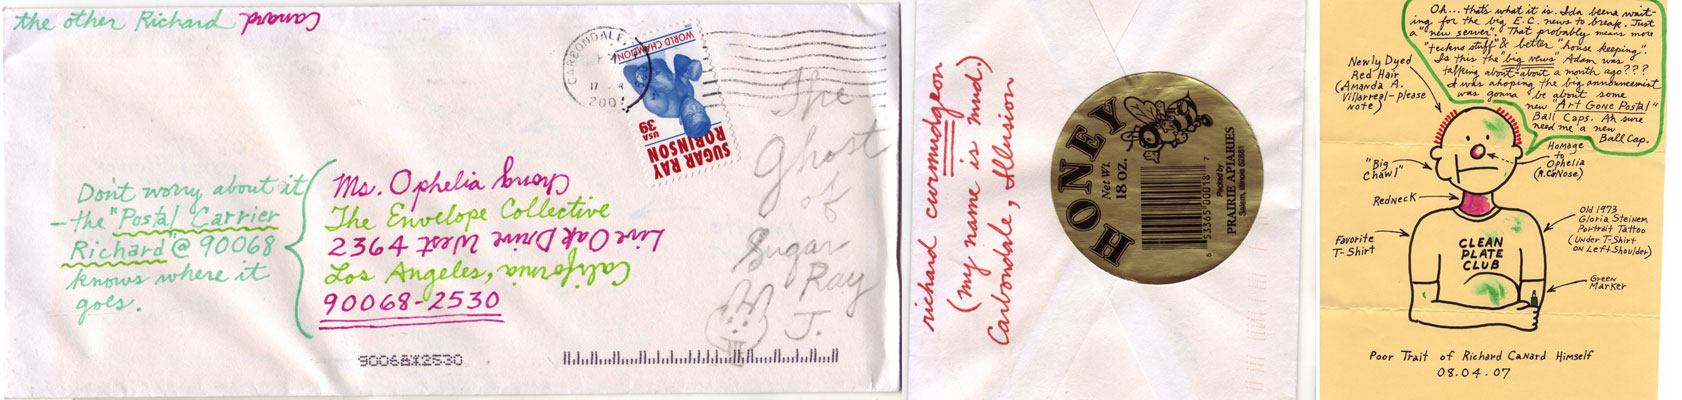 the other Richard Canard
CARBONDALE, IL
17
2007
WORLD CHAMPION
SUGAR RAY
ROBINSON
USA
39
The
Ghost
of
Sugar
Ray
J.
Don't worry about it
— the "Postal Carrier
Richard" @ 90068
knows where it
goes.
Ms. Ophelia Chong
The Envelope Collective
2364 West Live Oak Drive
Los Angeles, California
90068-2530
90068*2530
richard curmudgeon
(my name is mud.)
Carbondale, Illusion
HONEY
Net Wt.
18 OZ.
53365 00018 7
6
Packed by
PRAIRIE APIARIES
Salem, Illinois 62881
Oh... that's what it is. Ida beena wait-
ing for the big E.C. news to break. Just
a "new server". That probably means more
"techno stuff" & better "house keeping".
Is this the "big news" Adam was
talking about - about a month ago???
I was ahoping the big announcement
was gonna be about some
new "Art Gone Postal"
Ball Caps. Ah sure
need me a new
Ball Cap.
Newly Dyed
Red Hair
(Amanda A.
Villarreal - please
note)
Homage
to
Ophelia
(R. CaNose)
"Big
Chawl"
Redneck
Favorite
T-Shirt
CLEAN
PLATE
CLUB
Old 1973
Gloria Steinem
Portrait Tattoo
(Under T-Shirt
on Left Shoulder)
Green
Marker
Poor Trait of Richard Canard Himself
08.04.07